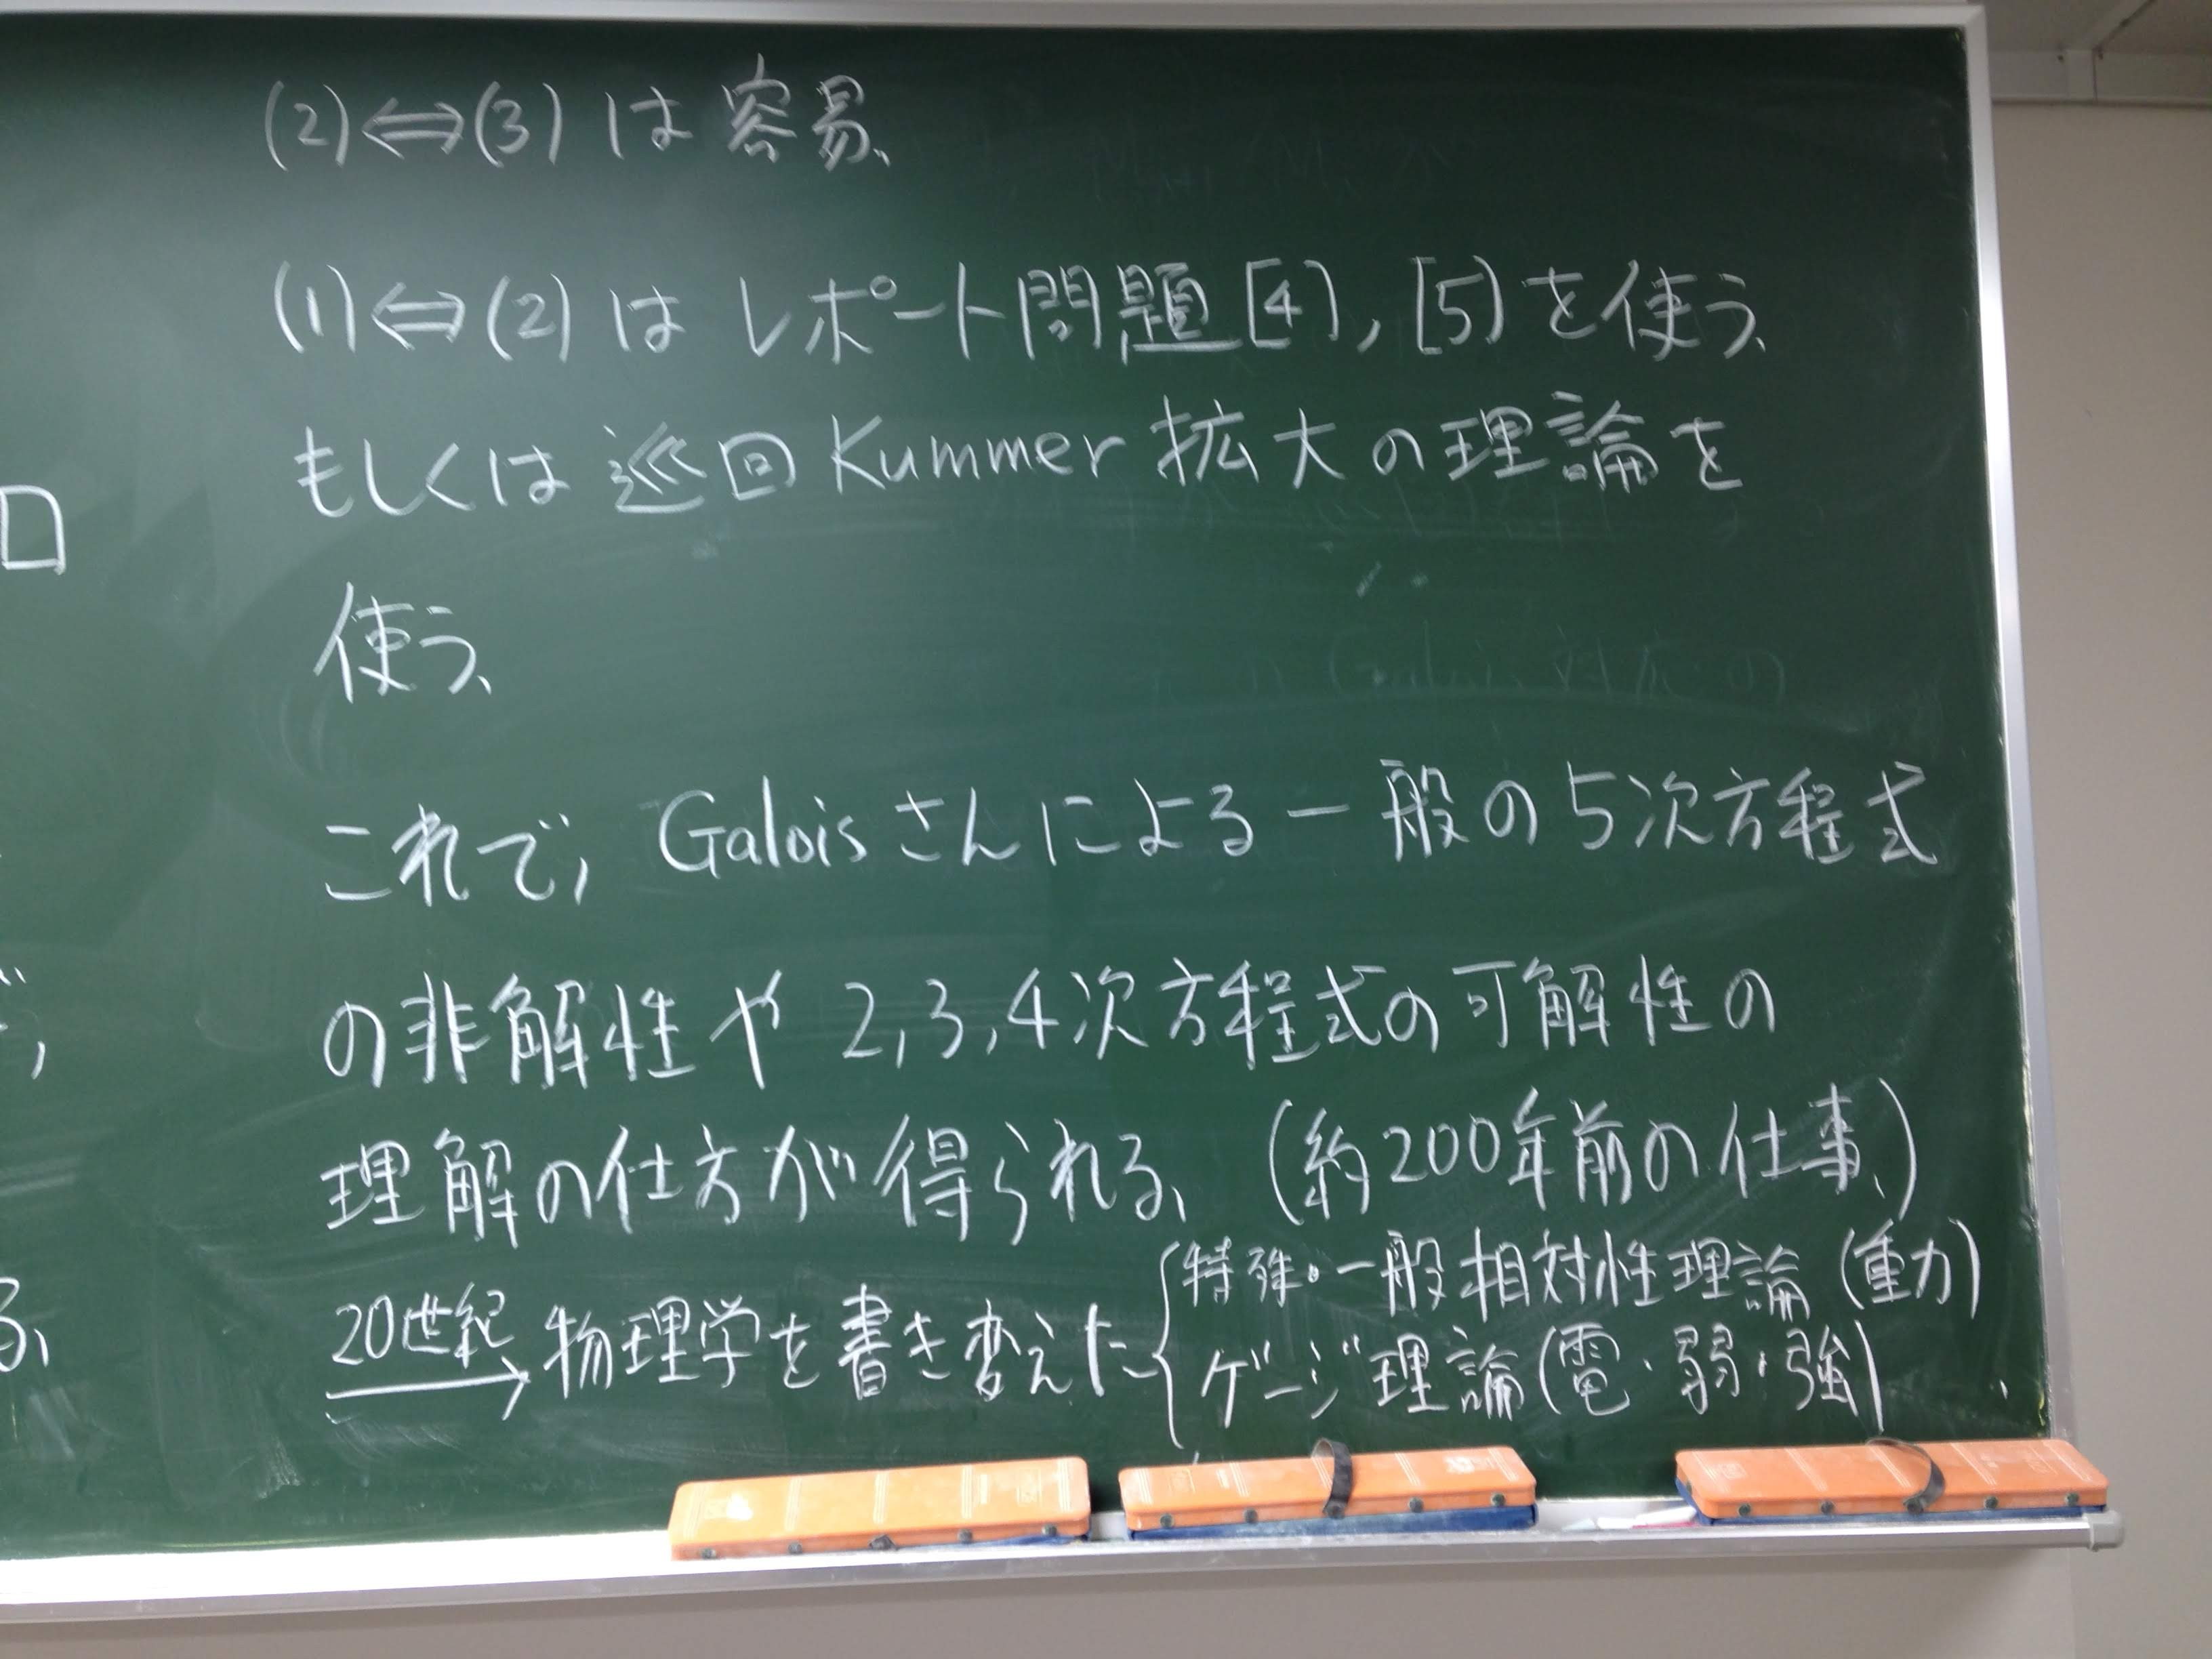 (2)⇔(3) は容易、
(1)⇔(2) は レポート問題[4], [5] を使う、
もしくは 巡回 Kummer 拡大の理論を
使う、
これで, Galois さんによる一般の5次方程式
の非解性や 2,3,4次方程式の可解性の
理解の仕方が得られる、 (約200年前の仕事、)
20世紀→物理学を書き変えた{特殊・一般相対性理論 (重力)
ゲージ理論(電・弱・強)